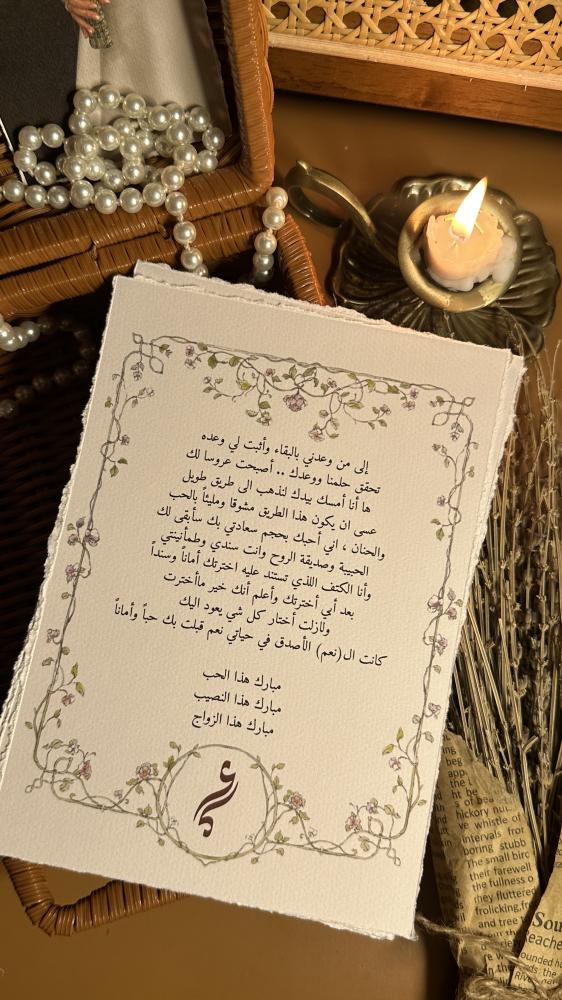 إلى من وعدني بالبقاء وأثبت لي وعده
تحقق حلمنا ووعدك .. أصبحت عروسا لك
ها أنا أمسك بيدك لنذهب الى طريق طويل
عسى ان يكون هذا الطريق مشوقا ومليئاً بالحب
والحنان ، اني أحبك بحجم سعادتي بك سأبقى لك
الحبيبة وصديقة الروح وانت سندي وطمأنينتي
وأنا الكتف اللذي تستند عليه اخترتك أماناً وسنداً
بعد أبي أخترتك وأعلم أنك خير مأخترت
ولازلت أختار كل شي يعود اليك
كانت ال(نعم) الأصدق في حياتي نعم قبلت بك حباً وأماناً
مبارك هذا الحب
مبارك هذا النصيب
مبارك هذا الزواج
beg
app.
hickory nu
whistle of
intervals fro
boring stubb
The small birc
their farewell
the fullness o
they fluttered
frolicking, fr
and tree
Sou